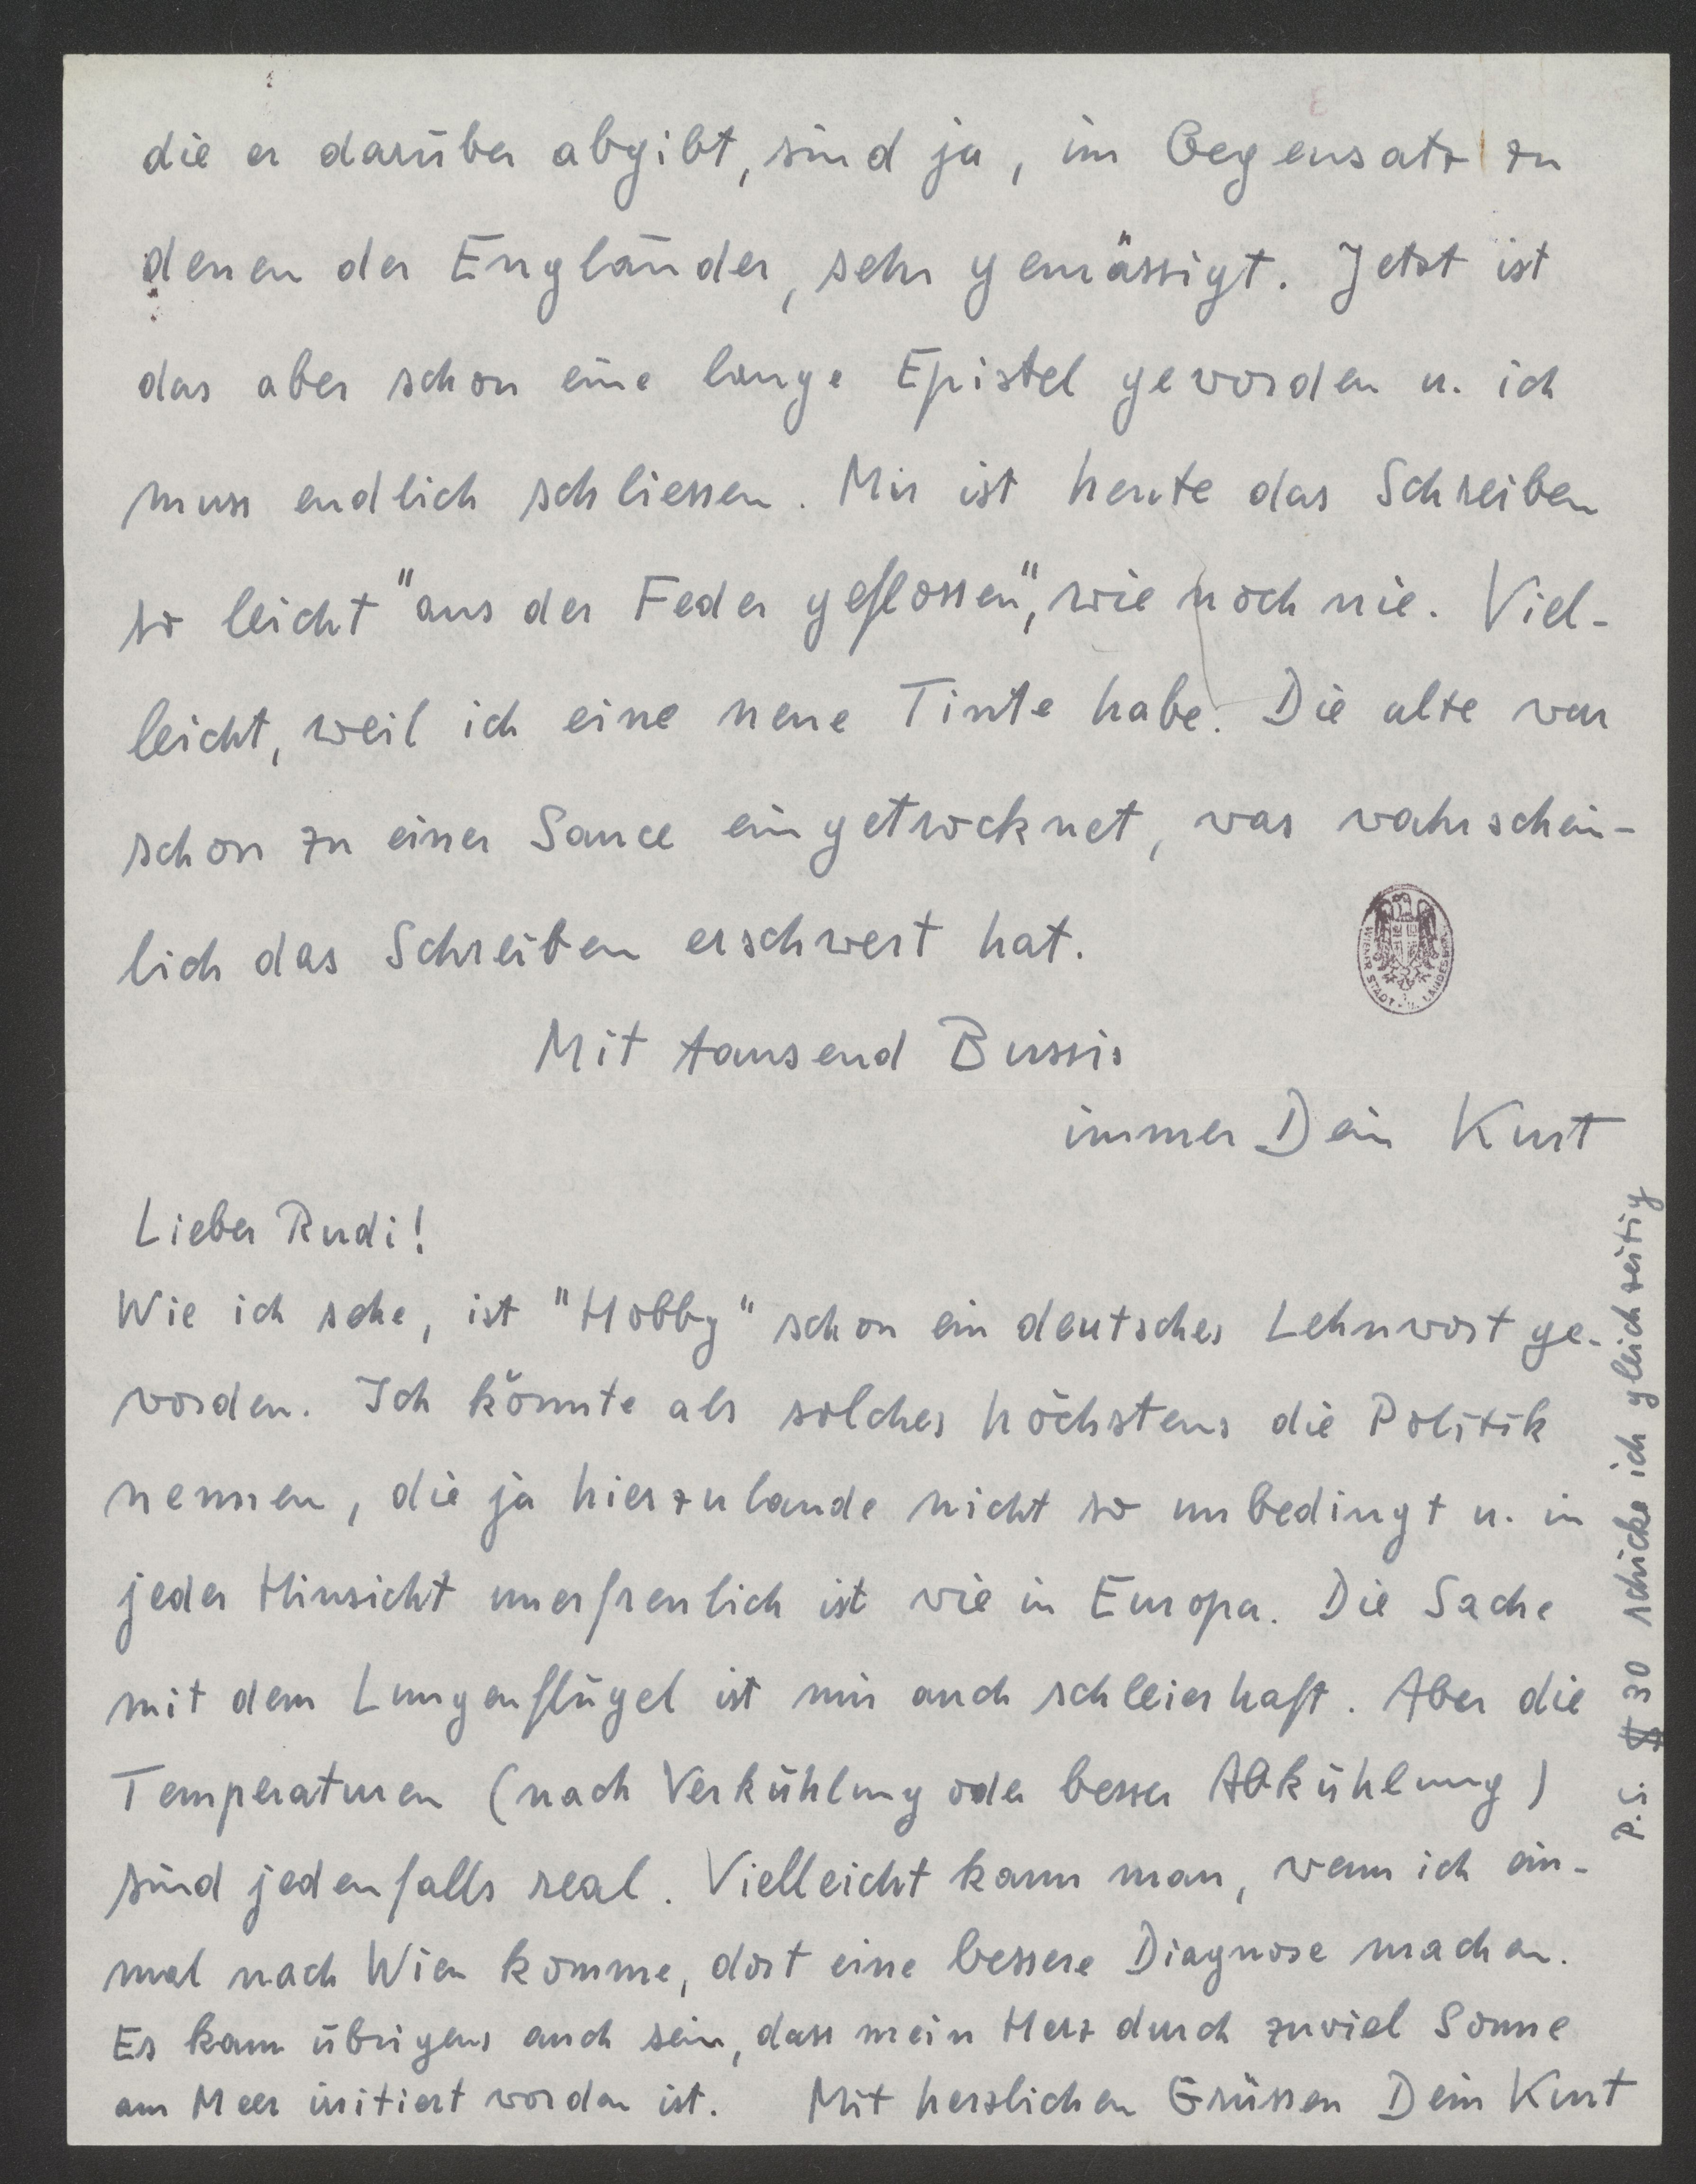 die er darüber abgibt, sind ja, im Gegensatz zu
denen der Engländer, sehr gemässigt. Jetzt ist
das aber schon eine lange Epistel geworden u. ich
muss endlich schliessen. Mir ist heute das Schreiben
so leicht "aus der Feder geflossen", wie noch nie. Viel-
leicht, weil ich eine neue Tinte habe. Die alte war
schon zu einer Sauce eingetrocknet, was wahrschein-
lich das Schreiben erschwert hat.
WIENER STADT- U. LANDESBIBL.
Mit tausend Bussis
immer Dein Kurt
Lieber Rudi!
Wie ich sehe, ist "Hobby" schon ein deutsches Lehnwort ge-
worden. Ich könnte als solches höchstens die Politik
nennen, die ja hierzulande nicht so unbedingt u. in
jeder Hinsicht unerfreulich ist wie in Europa. Die Sache
mit dem Lungenflügel ist mir auch schleierhaft. Aber die
Temperaturen (nach Verkühlung oder besser Abkühlung)
sind jedenfalls real. Vielleicht kann man, wenn ich ein-
mal nach Wien komme, dort eine bessere Diagnose machen.
Es kann übrigens auch sein, dass mein Herz durch zuviel Sonne
am Meer irritiert worden ist. Mit herzlichen Grüssen Dein Kurt
P.S. $ 30 schicke ich gleichzeitig